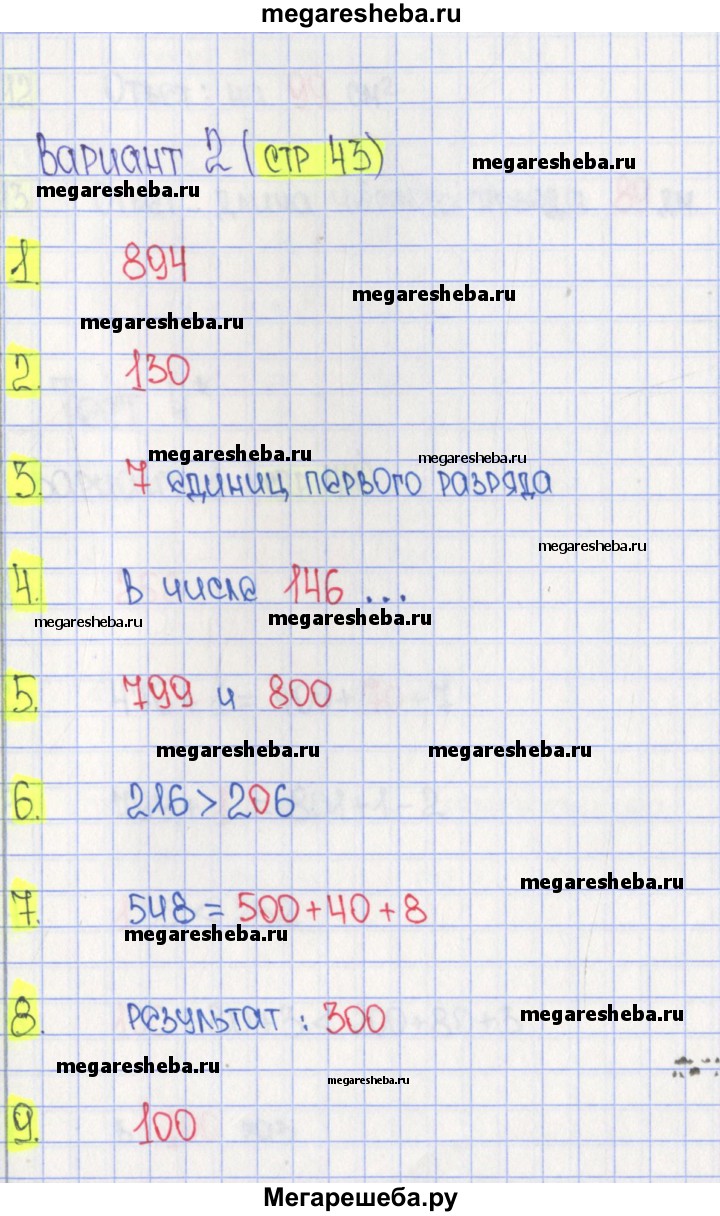 megaresheba.ru
Вариант 2 (стр 43)
megaresheba.ru
megaresheba.ru
1. 894
megaresheba.ru
megaresheba.ru
2. 130
megaresheba.ru
megaresheba.ru
3. 7 единиц первого разряда
megaresheba.ru
4. В числе 146 ...
megaresheba.ru
megaresheba.ru
5. 799 и 800
megaresheba.ru
megaresheba.ru
6. 216 > 206
megaresheba.ru
7. 548 = 500 + 40 + 8
megaresheba.ru
8. Результат : 300
megaresheba.ru
megaresheba.ru
megaresheba.ru
9. 100
Мегарешеба.ру